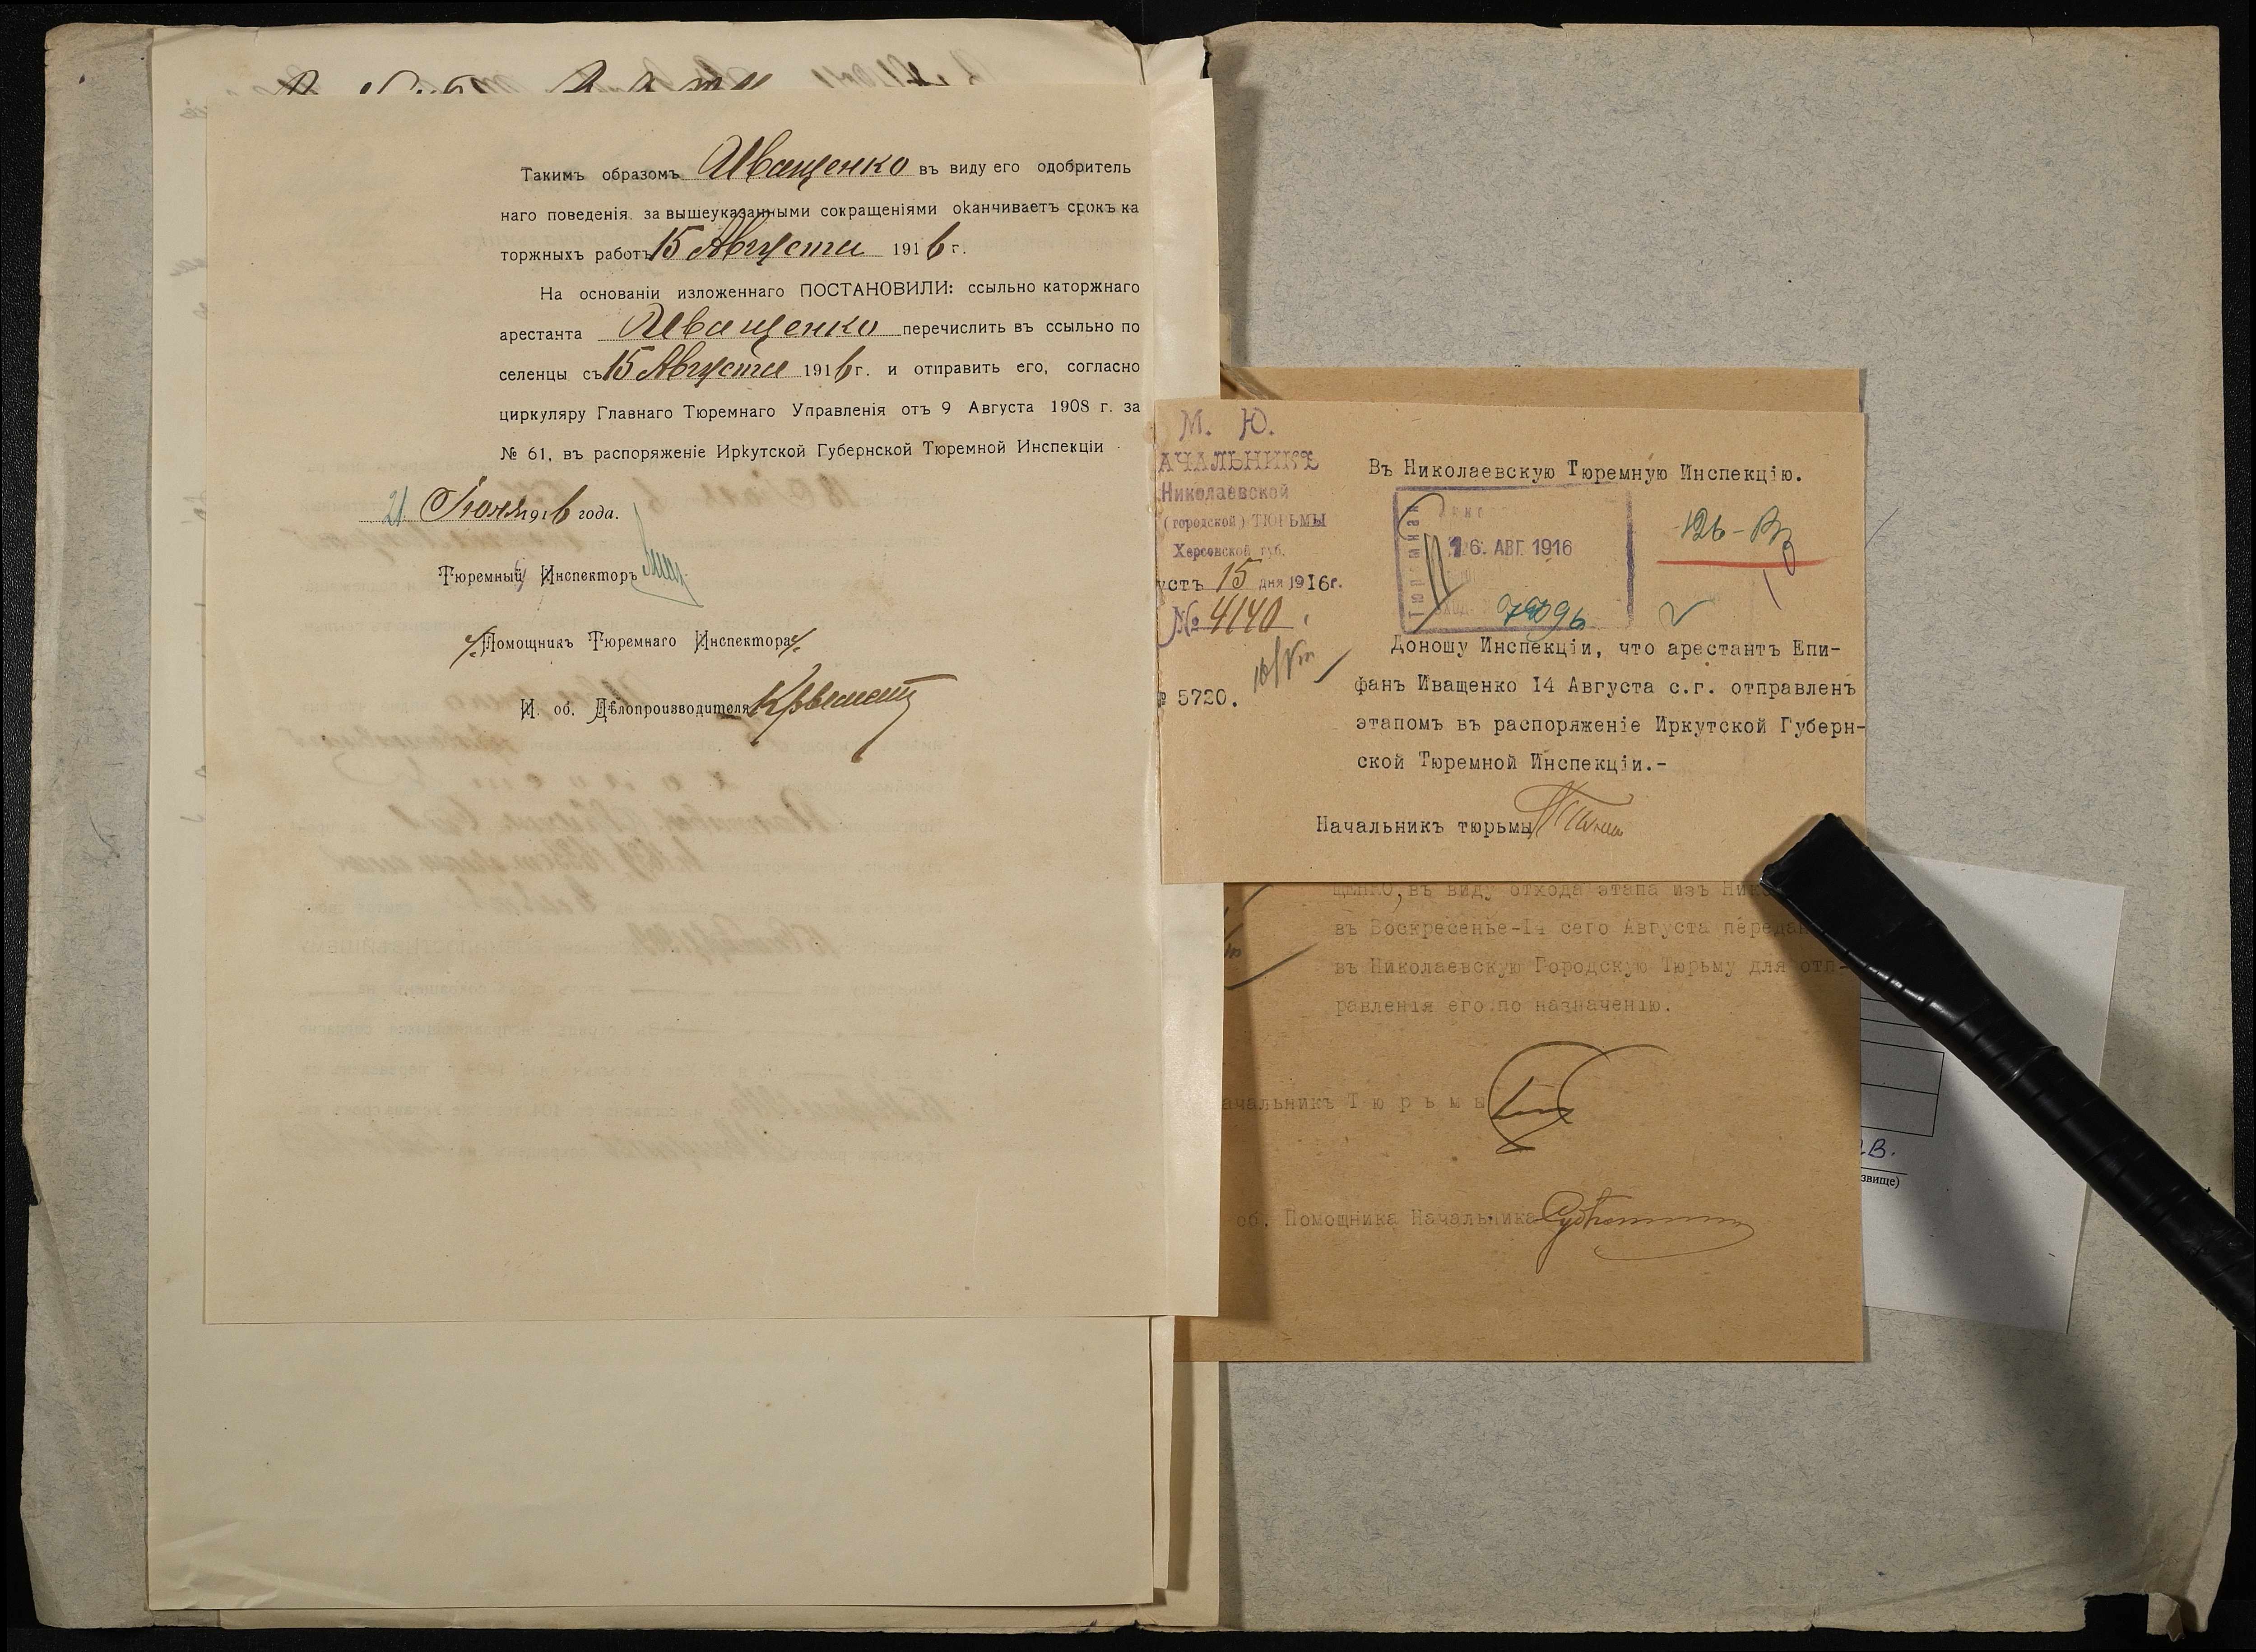 Такимъ образомъ Иващенко въ виду его одобритель
наго поведенія за вышеуказанными сокращеніями оканчиваетъ срокъ ка
торжныхъ работъ 15 Августа 1916 г.
На основаніи изложеннаго ПОСТАНОВИЛИ: ссыльно каторжнаго
арестанта Иващенко перечислить въ ссыльно по
селенцы съ 15 Августа 1916 г. и отправить его, согласно
циркуляру Главнаго Тюремнаго Управленія отъ 9 Августа 1908 г. за
№ 61, въ распоряженіе Иркутской Губернской Тюремной Инспекціи
21 Іюля 1916 года.
Тюремный Инспекторъ
Помощникъ Тюремнаго Инспектора
И. об. Дѣлопроизводителя
М. Ю.
АЧАЛЬНИКЪ
Николаевской
(городской) ТЮРЬМЫ
Херсонской губ.
устъ 15 дня 1916г.
№ 4140
№ 5720.
Въ Николаевскую Тюремную Инспекцію.
16 АВГ. 1916
126-
Доношу Инспекціи, что арестантъ Епи-
фанъ Иващенко 14 Августа с.г. отправленъ
этапомъ въ распоряженіе Иркутской Губерн-
ской Тюремной Инспекціи.-
Начальникъ тюрьмы
ЩЕНКО, въ виду отхода этапа изъ Ник
въ Воскресенье-14 сего Августа передан
въ Николаевскую Городскую Тюрьму для отп-
равленія его по назначенію.
ачальникъ Тюрьмы
об. Помощника Начальника
.В.
звище)